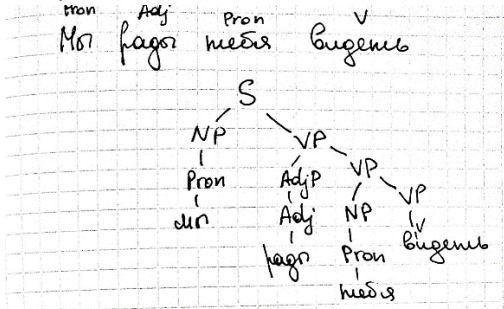 Pron Adj Pron V
Мы рады тебя видеть
S
NP VP
Pron AdjP VP
мы Adj NP VP
рады Pron V
тебя видеть